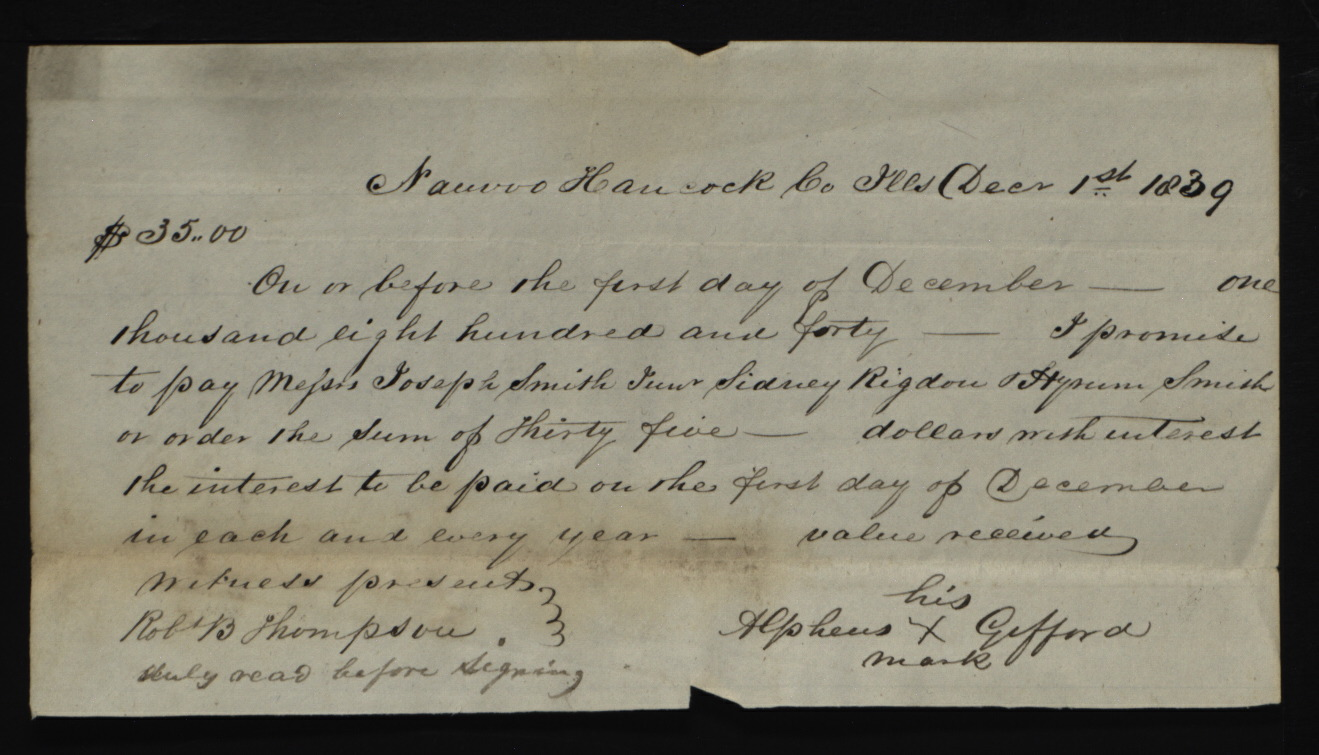 Nauvoo Hancock Co Ills Decr 1st 1839
$35..00
On or before the first day of December — one
thousand eight hundred and forty — I promise
to pay Messrs Joseph Smith Junr Sidney Rigdon & Hyrum Smith
or order the sum of thirty five — dollars with interest
the interest to be paid on the first day of December
in each and every year — value received
Witness present
Robt B Thompson
duly read before signing
his
Alpheus X Gifford
mark